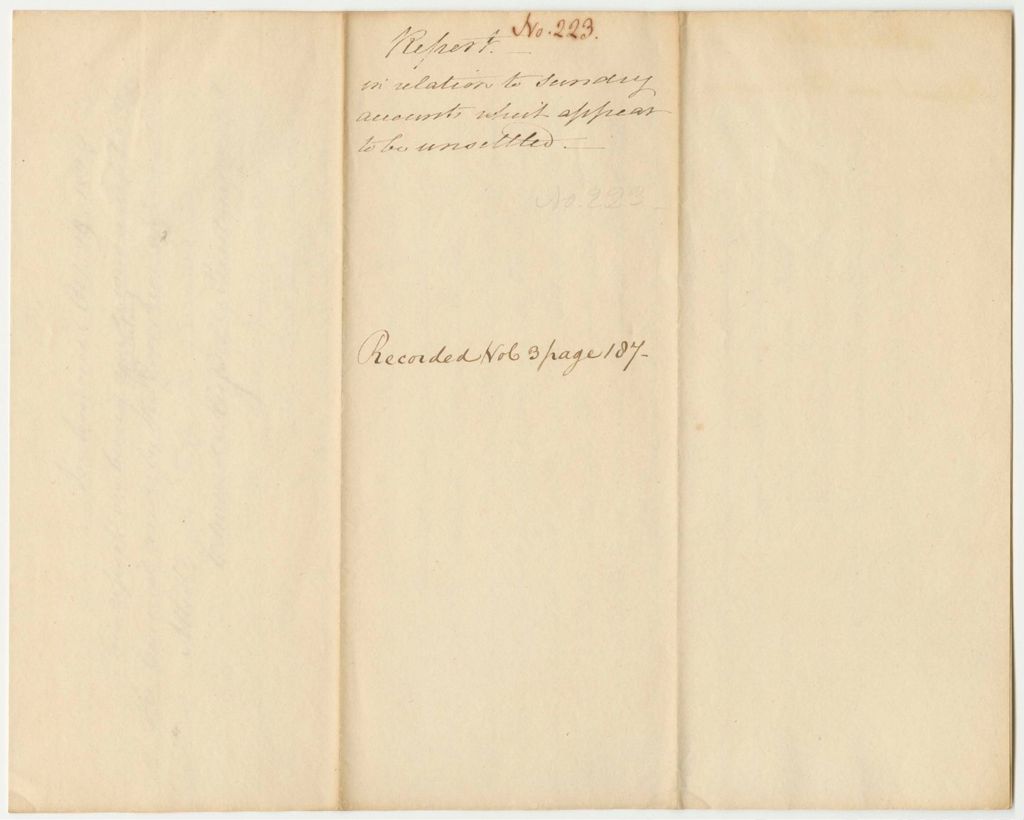 No. 223.
Report.
in relation to sundry
accounts which appear
to be unsettled.
No. 223
Recorded Vol 3 page 187